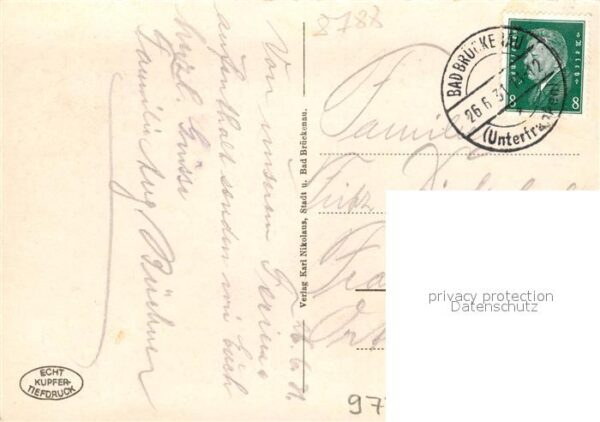 8788
26.6.31.
Von unserem Ferien-
aufenthalt senden wir Euch
herzl. Grüsse
Familie Aug. Büchner
Verlag Karl Nikolaus, Stadt u. Bad Brückenau.
BAD BRÜCKENAU
26.6.31
(Unterfranken)
8 8
Familie
Fritz
privacy protection
Datenschutz
ECHT
KUPFER-
TIEFDRUCK
97